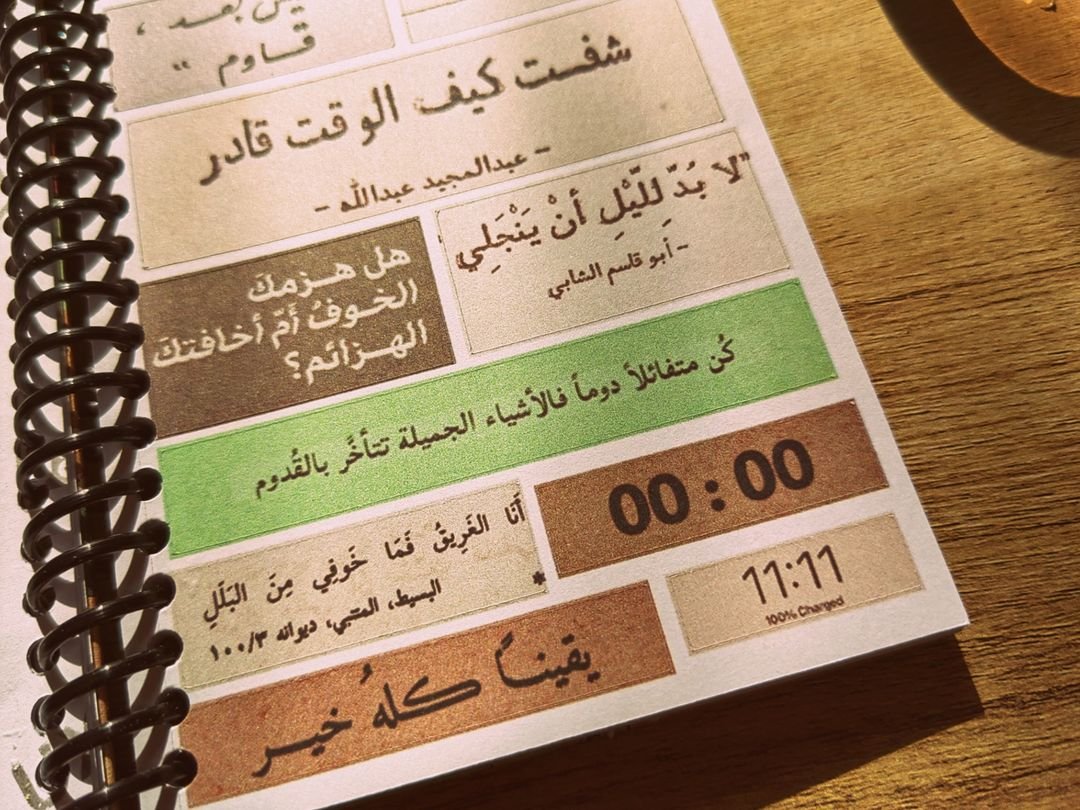 بعد ،
قاوم "
شفت كيف الوقت قادر
- عبدالمجيد عبدالله -
"لا بُدَّ لِلّيْلِ أنْ يَنْجَلِي
- أبو قاسم الشابي
هل هـزمكَ
الخـوفُ أمّ أخافتكَ
الهـزائم؟
كُن متفائلاً دوماً فالأشياء الجميلة تتأخَر بالقُدوم
00 : 00
أَنَا الغَرِيقُ فَمَا خَوفِي مِنَ البَلَلِ
* البسيط، المتنبي، ديوانه ١٠٠/٣
11:11
100% Charged
يقينـاً كلهُ خيـر